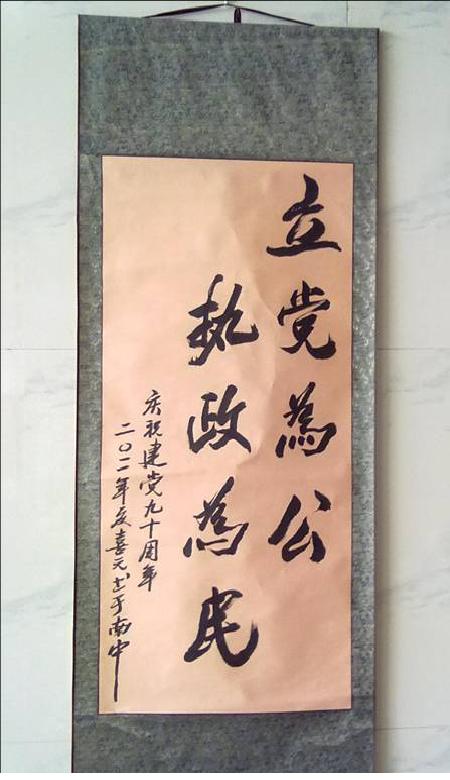 立党為公
执政為民
庆祝建党九十周年
二〇一一年喜元书于南中